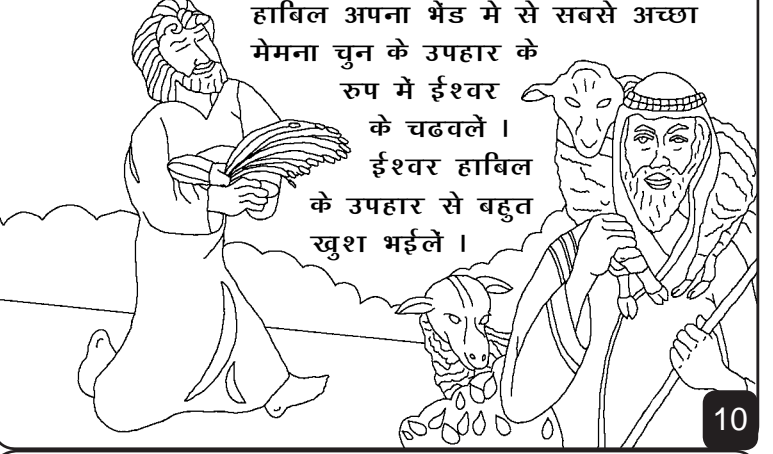 हाबिल अपना भेंड मे से सबसे अच्छा
मेमना चुन के उपहार के
रुप में ईश्वर
के चढवलें ।
ईश्वर हाबिल
के उपहार से बहुत
खुश भईलें ।
10